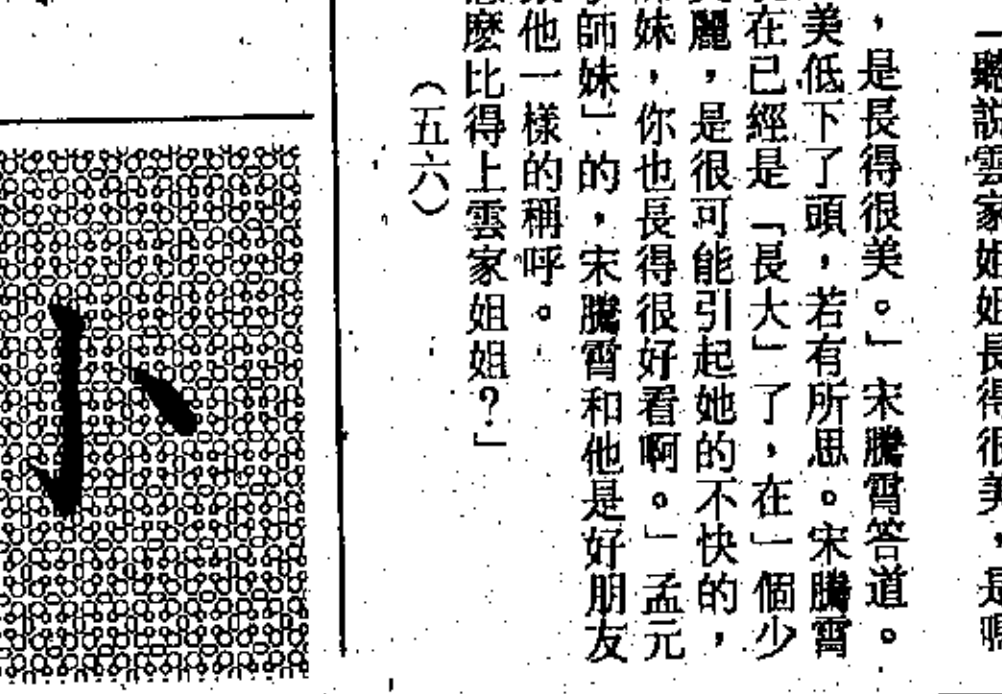 「聽說雲家姐姐長得很美，是嗎
，是長得很美。」宋騰霄答道。
美低下了頭，若有所思。宋騰霄
在已經是「長大」了，在一個少
麗，是很可能引起她的不快的，
妹，你也長得很好看啊。」孟元
師妹」的，宋騰霄和他是好朋友
他一樣的稱呼。
麽比得上雲家姐姐？」
（五六）
小